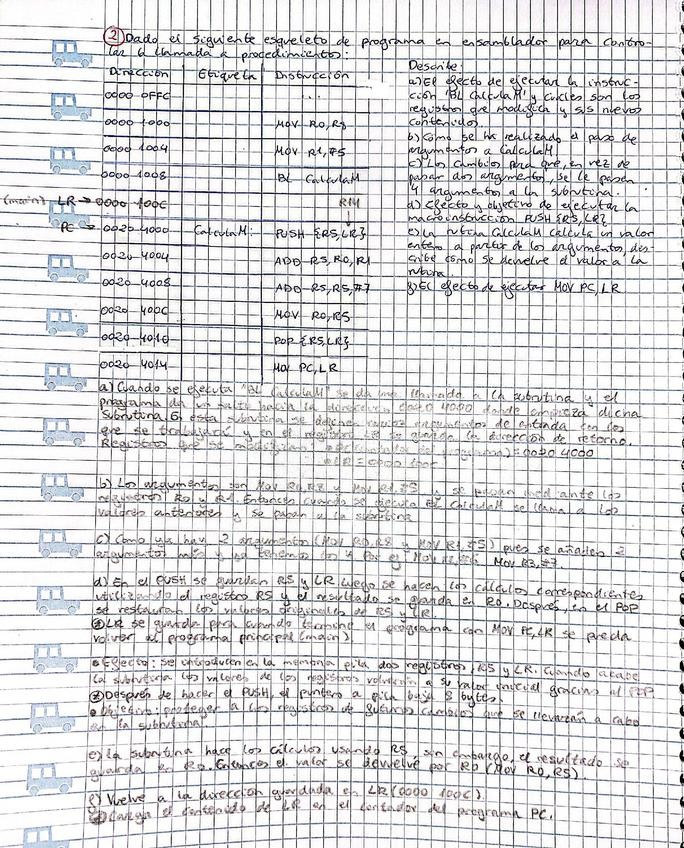 ② Dado el siguiente esqueleto de programa en ensamblador para contro-
lar la llamada a procedimientos:
Dirección Etiqueta Instrucción
0000 0FFC ...
0000 1000 MOV R0,R8
0000 1004 MOV R1,#5
0000 1008 BL CalculaM
(main) LR → 0000 100C R14
PC → 0020 4000 CalculaM: PUSH {R5,LR}
0020 4004 ADD R5,R0,R1
0020 4008 ADD R5,R5,#7
0020 400C MOV R0,R5
0020 4010 POP {R5,LR}
0020 4014 MOV PC,LR
Describe:
a) El efecto de ejecutar la instruc-
ción "BL CalculaM" y cuáles son los
registros que modifica y sus nuevos
contenidos.
b) Cómo se ha realizado el paso de
argumentos a CalculaM
c) Los cambios para que, en vez de
pasar dos argumentos, se le pasen
4 argumentos a la subrutina.
d) Efecto y objetivo de ejecutar la
macroinstrucción PUSH {R5,LR}
e) La rutina CalculaM calcula un valor
entero a partir de los argumentos, des-
cribe cómo se devuelve el valor a la
rutina.
f) El efecto de ejecutar MOV PC,LR
a) Cuando se ejecuta "BL CalculaM" se da una llamada a la subrutina y el
programa da un salto hacia la dirección 0020 4000 donde empieza dicha
subrutina. En esta subrutina se argumentos de entrada con los
que se trabajará y en el registro LR se guarda la dirección de retorno.
Registros que se modifican: programa) = 0020 4000
LR = 0000 100C
b) Los argumentos son Mov R0,R8 y Mov R1,#5 y se pasan mediante los
registros R0 y R1. Entonces cuando se ejecuta BL CalculaM se llama a los
valores anteriores y se pasan a la subrutina
c) Como ya hay 2 argumentos (Mov R0,R8 y Mov R1,#5) pues se añaden 2
argumentos más y ya tenemos los 4. Por ej: Mov R2,#6 Mov R3,#7
d) En el PUSH se guardan R5 y LR luego se hacen los cálculos correspondientes
utilizando el registro R5 y el resultado se guarda en R0. Después, en el POP
se restauran los valores originales de R5 y LR.
LR se guarda para cuando termine el programa con MOV PC,LR se pueda
volver al programa principal (main)
• Efecto: se introducen en la memoria pila dos registros, R5 y LR. Cuando acabe
la subrutina los valores de los registros volverán a su valor inicial gracias al POP
Después de hacer el PUSH, el puntero a pila baja 8 bytes.
• Objetivo: proteger a los registros de futuros cambios que se llevarán a cabo
en la subrutina.
e) La subrutina hace los cálculos usando R5 sin embargo, el resultado se
guarda en R0. Entonces el valor se devuelve por R0 (Mov R0,R5).
f) Vuelve a la dirección guardada en LR (0000 100C).
Carga el contenido de LR en el contador del programa PC.